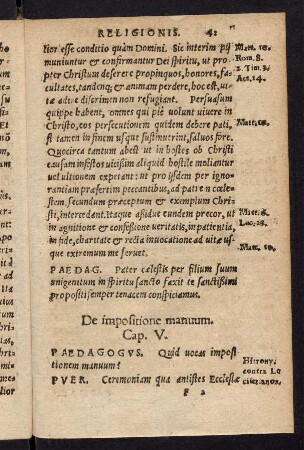 RELIGIONIS. 41
lior esse conditio quàm Domini. Sic interim pij
muniuntur & confirmantur Dei spiritu, ut pro-
pter Christum deserere propinquos, honores, fa-
cultates, tandemq; & animam perdere, hoc est, ui-
tæ adire discrimen non refugiant. Persuasum
quippe habent, omnes qui piè uolunt uiuere in
Christo, eos persecutionem quidem debere pati,
si tamen in finem usque sustinuerint, saluos fore.
Quocirca tantum abest ut in hostes ob Christi
causam infestos uicissim aliquid hostile moliantur
uel ultionem expetant: ut pro ijsdem per igno-
rantiam præsertim peccantibus, ad patrē cœle-
stem, secundum præceptum & exemplum Chri-
sti, intercedant. Itaque assidue eundem precor, ut
in agnitione & confessione ueritatis, in patientia,
in fide, charitate & recta inuocatione ad uitæ us-
que extremum me seruet.
PAEDAG. Pater cælestis per filium suum
unigenitum in spiritu sancto faxit te sanctissimi
propositi semper tenacem conspiciamus.
De impositione manuum.
Cap. V.
PAEDAGOGVS. Quid uocas imposi
tionem manuum?
PVER. Ceremoniam qua antistes Ecclesiæ
F 2
Matt. 10.
Rom. 8.
2. Tim. 3.
Act. 14.
Matt. 10.
Matt. 5.
Luc. 23.
Matt. 10.
Hierony.
contra Lu
ciferianos.